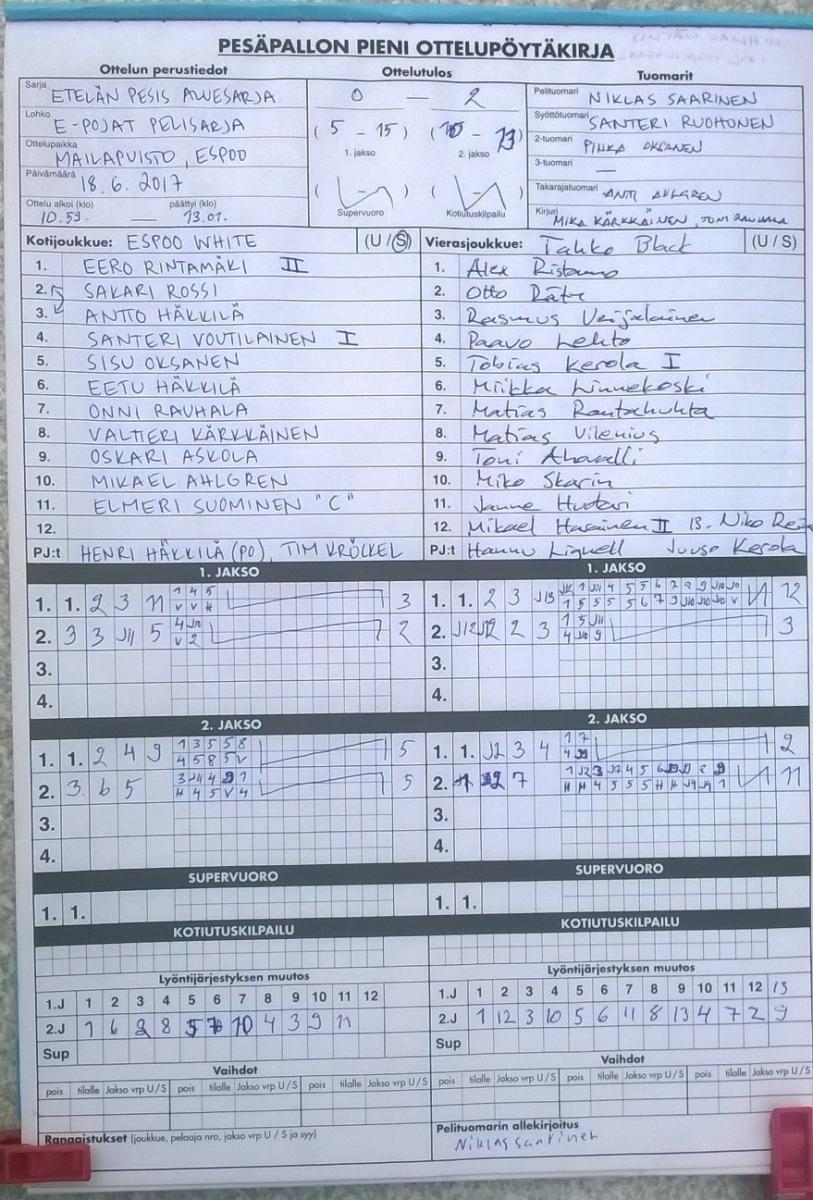 PESÄPALLON PIENI OTTELUPÖYTÄKIRJA
Ottelun perustiedot
Sarja ETELÄN PESIS ALUESARJA
Lohko E-POJAT PELISARJA
Ottelupaikka MAILAPUISTO, ESPOO
Päivämäärä 18.6.2017
Ottelu alkoi (klo) päättyi (klo)
10.59. — 13.01.
Ottelutulos
0 — 2
(5 - 15) (10 - 13)
1. jakso 2. jakso
Supervuoro Kotiutuskilpailu
Tuomarit
Pelituomari NIKLAS SAARINEN
Syöttötuomari SANTERI RUOHONEN
2-tuomari OKSANEN
3-tuomari —
Takarajatuomari AHLGREN
Kirjuri MIKA KÄRKKÄINEN, TOMI RAUHALA
Kotijoukkue: ESPOO WHITE (U/S)
1. EERO RINTAMÄKI II
2. SAKARI ROSSI
3. ANTTO HÄKKILÄ
4. SANTERI VOUTILAINEN I
5. SISU OKSANEN
6. EETU HÄKKILÄ
7. ONNI RAUHALA
8. VALTTERI KÄRKKÄINEN
9. OSKARI ASKOLA
10. MIKAEL AHLGREN
11. ELMERI SUOMINEN "C"
12.
PJ:t HENRI HÄKKILÄ (PO), TIM KRÖCKEL
Vierasjoukkue: Tahko Black (U/S)
1. Alex
2. Otto Räty
3. Rasmus Veijalainen
4. Paavo Lehto
5. Tobias Kerola I
6. Miikka Linnekoski
7. Matias
8. Matias Vilenius
9. Toni
10. Miko Skarin
11. Janne
12. Mikael II 13. Niko
PJ:t Hannu Lignell Juuso Kerola
1. JAKSO
1. 1. 2 3 11 3
1 4 5
2. 3 3 J11 5 2
3.
4.
1. JAKSO
1. 1. 2 3 J13 12
2. J12 J12 2 3 3
3.
4.
2. JAKSO
1. 1. 2 4 9 5
1 3 5 5 8
4 5 8 5 V
2. 3 6 5 5
3.
4.
2. JAKSO
1. 1. J2 3 4 2
1 7
2. 7 11
3.
4.
SUPERVUORO
1. 1.
SUPERVUORO
1. 1.
KOTIUTUSKILPAILU
KOTIUTUSKILPAILU
Lyöntijärjestyksen muutos
1.J 1 2 3 4 5 6 7 8 9 10 11 12
2.J 1 6 2 8 5 7 10 4 3 9 11
Sup
Lyöntijärjestyksen muutos
1.J 1 2 3 4 5 6 7 8 9 10 11 12 13
2.J 1 12 3 10 5 6 11 8 13 4 7 2 9
Sup
Vaihdot
pois tilalle Jakso vrp U/S pois tilalle Jakso vrp U/S pois tilalle Jakso vrp U/S
Vaihdot
pois tilalle Jakso vrp U/S pois tilalle Jakso vrp U/S pois tilalle Jakso vrp U/S
Rangaistukset (joukkue, pelaaja nro, jakso vrp U/S ja syy)
Pelituomarin allekirjoitus
Niklas saarinen